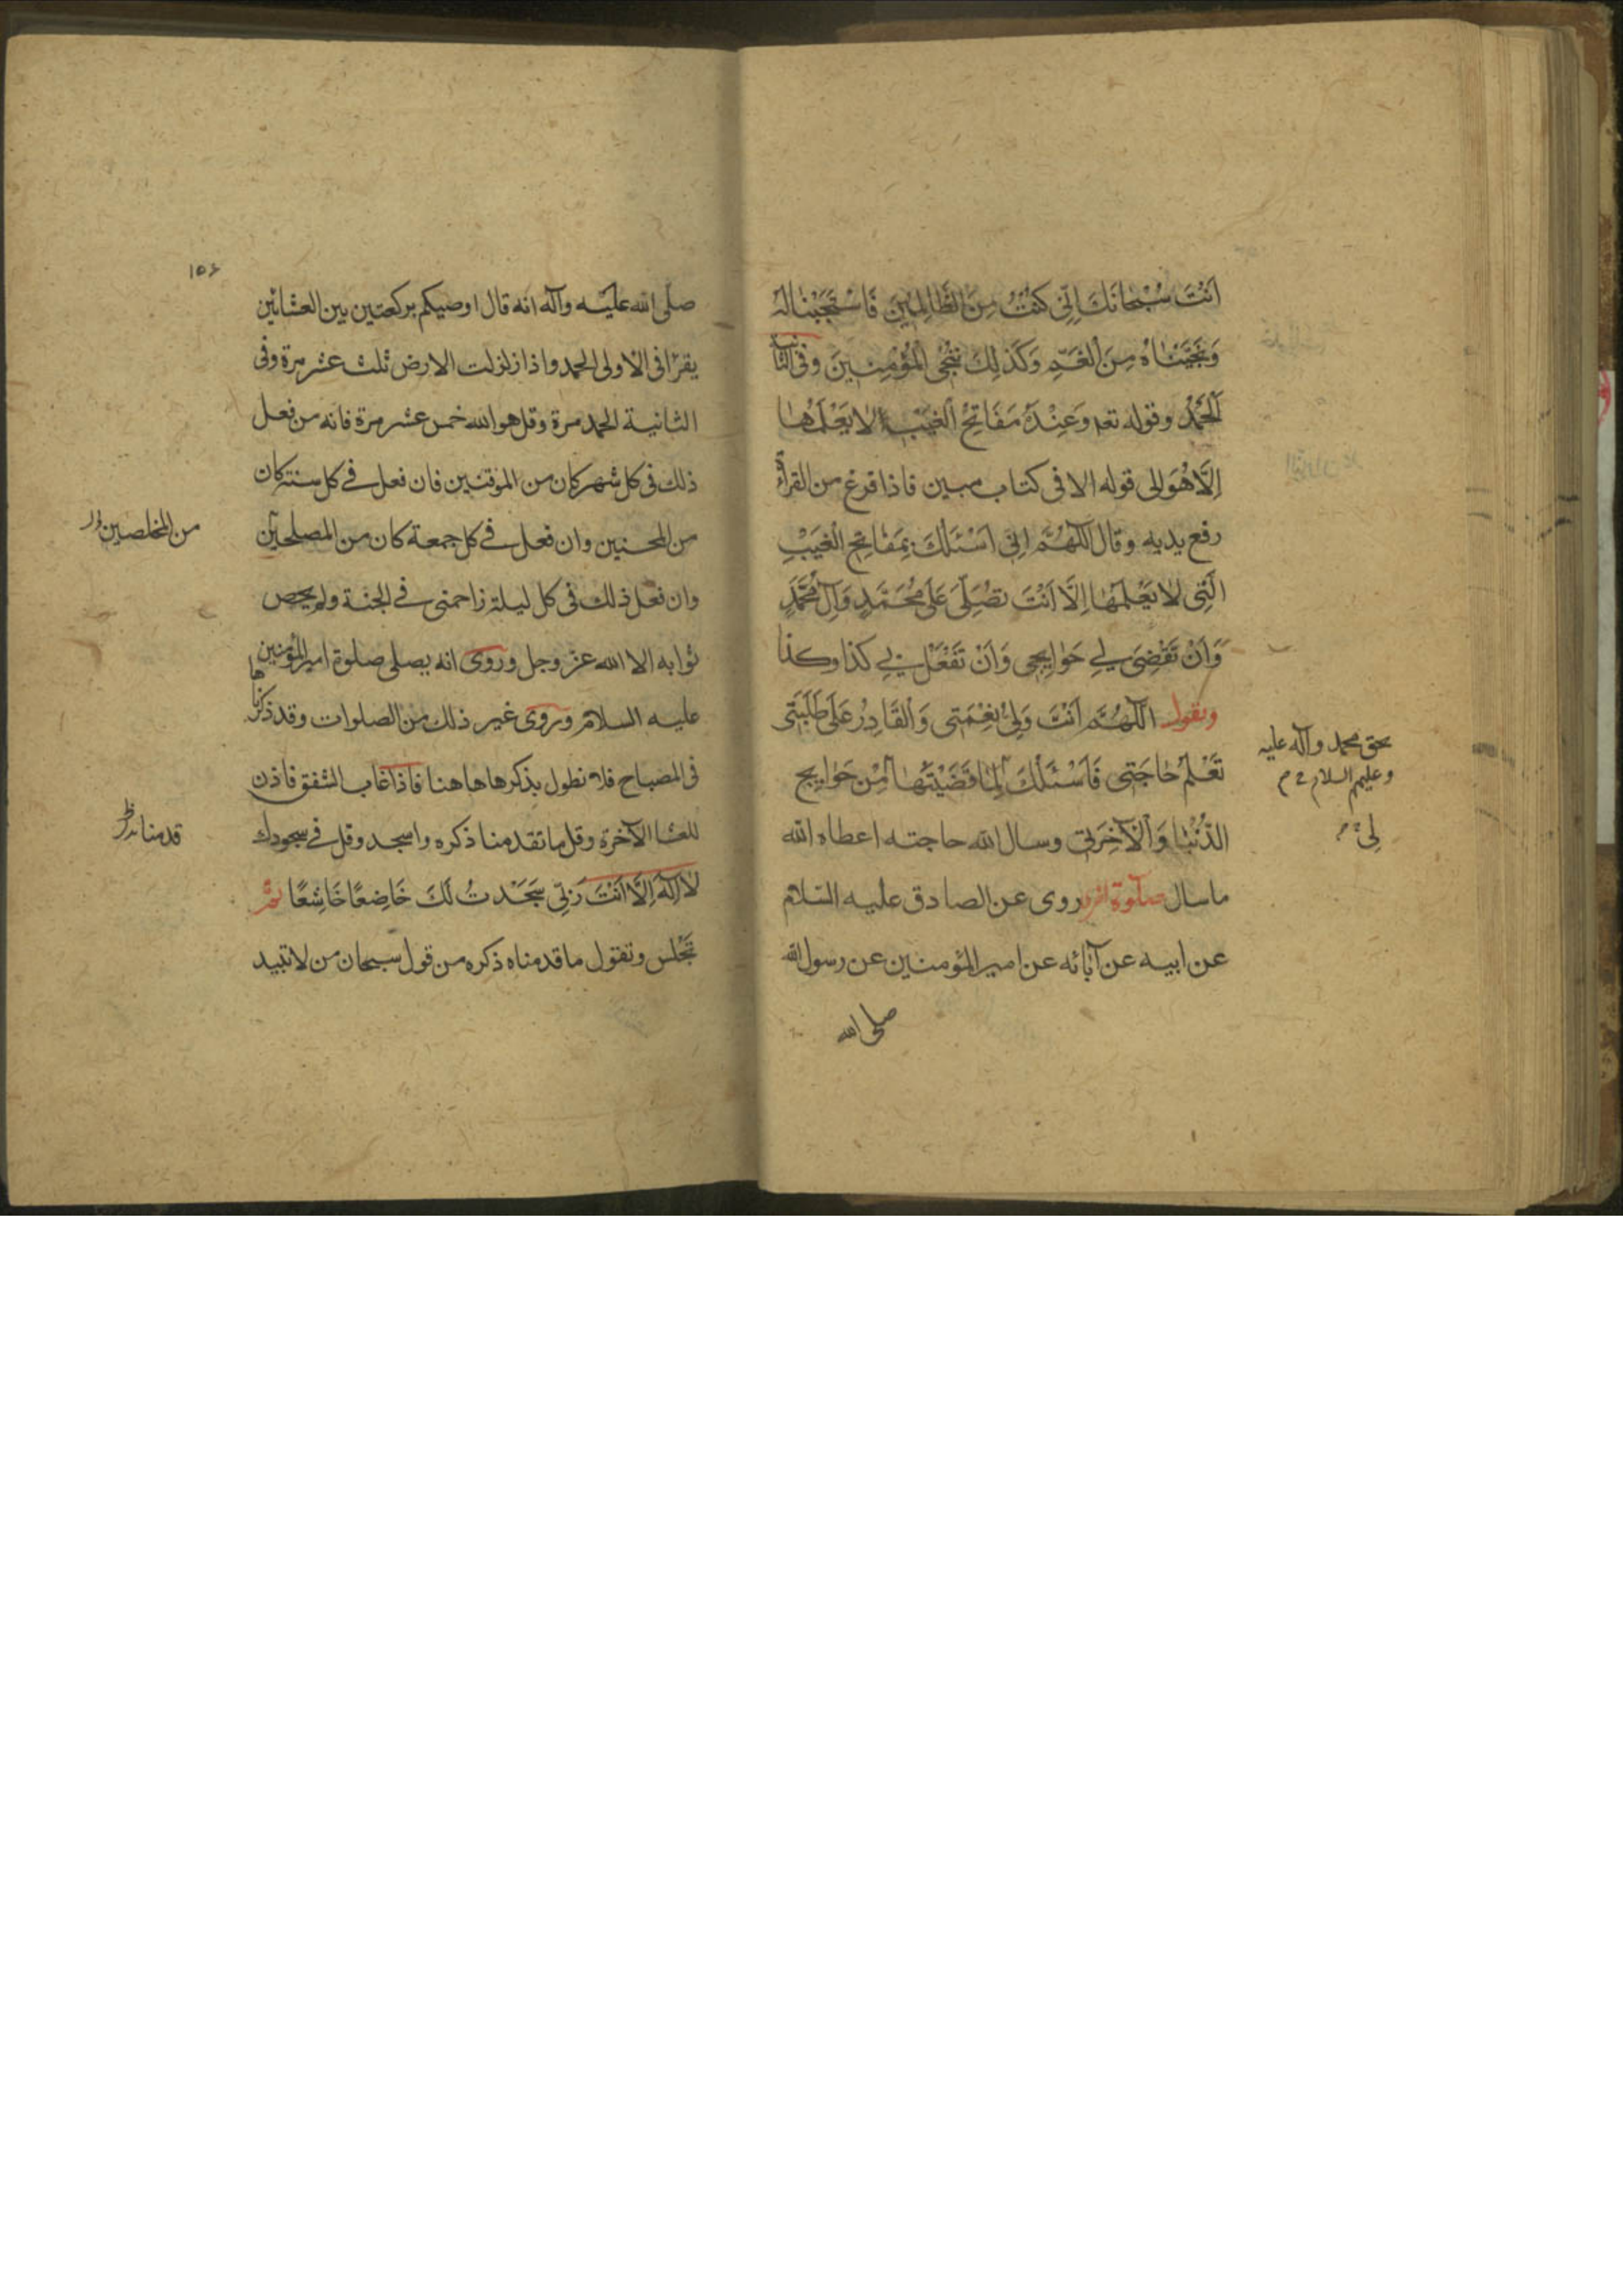 اَنْتَ سُبْحانَكَ اِنّي كُنْتُ مِنَ الظّالِمينَ فَاسْتَجَبْنا لَهُ
وَنَجَّيْناهُ مِنَ الْغَمِّ وَكَذلِكَ نُنْجِي الْمُؤْمِنينَ وفى الثانية
اَلْحَمْدُ وقوله تعم وَعِنْدَهُ مَفاتِحُ الْغَيْبِ لا يَعْلَمُها
اِلّا هُوَ الى قوله الا فى كتاب مبين فاذا فرغ من القراءة
رفع يديه وقال اَللّهُمَّ اِنّي اَسْئَلُكَ بِمَفاتِحِ الْغَيْبِ
الَّتي لا يَعْلَمُها اِلّا اَنْتَ تُصَلِّيَ عَلى مُحَمَّدٍ وَآلِ مُحَمَّدٍ
وَاَنْ تَقْضِيَ لي حَوايِجي وَاَنْ تَفْعَلَ بي كذا وكذا
وتقول اَللّهُمَّ اَنْتَ وَلِيُّ نِعْمَتي وَالْقادِرُ عَلى طَلِبَتي
تَعْلَمُ حاجَتي فَاَسْئَلُكَ لَمّا قَضَيْتَها مِنْ حَوايِج
الدُّنْيا وَالْآخِرَةِ وسال الله حاجته اعطاه الله
ما سال صلوة اخرى روى عن الصادق عليه السّلام
عن ابيه عن آبائه عن امير المؤمنين عن رسول الله
صلى الله
بحق محمد وآله عليه
وعليهم السلام
لي
١٥٤
صلّى الله عليه وآله انه قال اوصيكم بركعتين بين العشائين
يقرأ فى الاولى الحمد واذا زلزلت الارض ثلث عشر مرة وفى
الثانية الحمد مرة وقل هو الله خمس عشر مرة فانه من فعل
ذلك فى كل شهر كان من الموقنين فان فعل فى كل سنة كان
من المحسنين وان فعل فى كل جمعة كان من المصلحين
وان فعل ذلك فى كل ليلة زاحمنى فى الجنة ولم يحص
ثوابه الا الله عز وجل وروى انه يصلى صلوة امير المؤمنين
عليه السلام وروى غير ذلك من الصلوات وقد ذكرناها
فى المصباح فلا نطول بذكرها هاهنا فاذا غاب الشفق فاذن
للعشا الآخرة وقل ما تقدمنا ذكره واسجد وقل فى سجودك
لا اِلهَ اِلّا اَنْتَ رَبّي سَجَدْتُ لَكَ خاضِعًا خاشِعًا ثم
تجلس وتقول ما قدمناه ذكره من قول سبحان من لا تبيد
من المخلصين
قدمنا